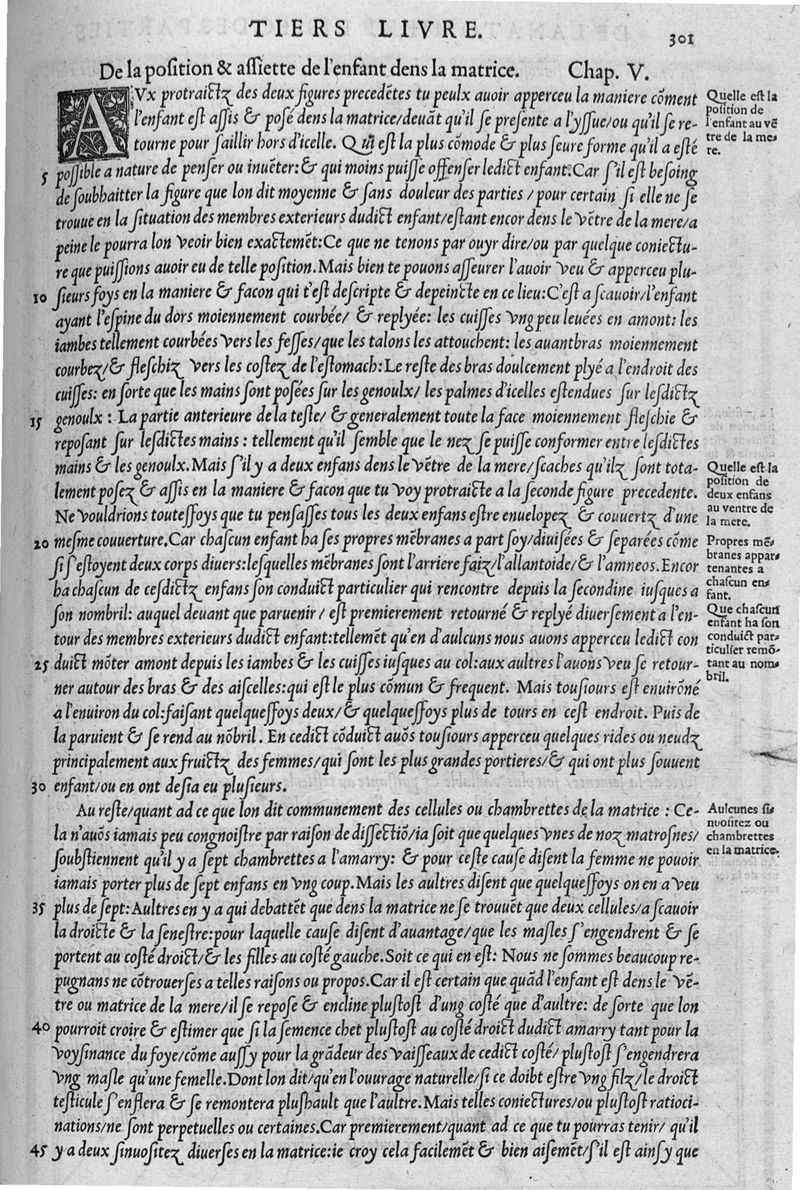 TIERS LIVRE.
301
De la position & assiette de l'enfant dens la matrice. Chap. V.
AVx protraictz des deux figures precedẽtes tu peulx auoir apperceu la maniere cõment
l'enfant est assis & posé dens la matrice/deuãt qu'il se presente a l'yssue/ou qu'il se re-
tourne pour saillir hors d'icelle. Qui est la plus cõmode & plus seure forme qu'il a esté
5 possible a nature de penser ou inuẽter:& qui moins puisse offenser ledict enfant.Car s'il est besoing
de soubhaitter la figure que lon dit moyenne & sans douleur des parties / pour certain si elle ne se
trouue en la situation des membres exterieurs dudict enfant/estant encor dens le vẽtre de la mere/a
peine le pourra lon veoir bien exactemẽt:Ce que ne tenons par ouyr dire/ou par quelque coniectu-
re que puissions auoir eu de telle position.Mais bien te pouons asseurer l'auoir veu & apperceu plu-
10 sieurs foys en la maniere & facon qui t'est descripte & depeincte en ce lieu:C'est a scauoir/l'enfant
ayant l'espine du dors moiennement courbée/ & replyée: les cuisses vng peu leuées en amont: les
iambes tellement courbées vers les fesses/que les talons les attouchent: les auantbras moiennement
courbez/& fleschiz vers les costez de l'estomach:Le reste des bras doulcement plyé a l'endroit des
cuisses: en sorte que les mains sont posées sur les genoulx/ les palmes d'icelles estendues sur lesdictz
15 genoulx : La partie anterieure de la teste/ & generalement toute la face moiennement fleschie &
reposant sur lesdictes mains : tellement qu'il semble que le nez se puisse conformer entre lesdictes
mains & les genoulx.Mais s'il y a deux enfans dens le vẽtre de la mere/scaches qu'ilz sont tota-
lement posez & assis en la maniere & facon que tu voy protraicte a la seconde figure precedente.
Ne vouldrions toutesfoys que tu pensasses tous les deux enfans estre enuelopez & couuertz d'une
20 mesme couuerture.Car chascun enfant ha ses propres mẽbranes a part soy/diuisées & separées cõme
si s'estoyent deux corps diuers:lesquelles mẽbranes sont l'arriere faiz/l'allantoide/& l'amneos.Encor
ha chascun de cesdictz enfans son conduict particulier qui rencontre depuis la secondine iusques a
son nombril: auquel deuant que paruenir / est premierement retourné & replyé diuersement a l'en-
tour des membres exterieurs dudict enfant:tellemẽt qu'en d'aulcuns nous auons apperceu ledict con
25 duict mõter amont depuis les iambes & les cuisses iusques au col:aux aultres l'auons veu se retour-
ner autour des bras & des aiscelles:qui est le plus cõmun & frequent. Mais tousiours est enuirõné
a l'enuiron du col:faisant quelquesfoys deux/& quelquesfoys plus de tours en cest endroit. Puis de
la paruient & se rend au nõbril. En cedict cõduict auõs tousiours apperceu quelques rides ou neudz
principalement aux fruictz des femmes/qui sont les plus grandes portieres/& qui ont plus souuent
30 enfanté/ou en ont desia eu plusieurs.
Au reste/quant ad ce que lon dit communement des cellules ou chambrettes de la matrice : Ce-
la n'auõs iamais peu congnoistre par raison de dissectiõ/ia soit que quelques vnes de noz matrosnes/
soubstiennent qu'il y a sept chambrettes a l'amarry: & pour ceste cause disent la femme ne pouoir
iamais porter plus de sept enfans en vng coup.Mais les aultres disent que quelquesfoys on en a veu
35 plus de sept:Aultres en y a qui debattẽt que dens la matrice ne se trouuẽt que deux cellules/a scauoir
la droicte & la senestre:pour laquelle cause disent d'auantage/que les masles s'engendrent & se
portent au costé droict/& les filles au costé gauche.Soit ce qui en est: Nous ne sommes beaucoup re-
pugnans ne cõtrouerses a telles raisons ou propos.Car il est certain que quãd l'enfant est dens le vẽ-
tre ou matrice de la mere/il se repose & encline plustost d'ung costé que d'aultre: de sorte que lon
40 pourroit croire & estimer que si la semence chet plustost au costé droict dudict amarry tant pour la
voysinance du foye/cõme aussy pour la grãdeur des vaisseaux de cedict costé/ plustost s'engendrera
vng masle qu'une femelle.Dont lon dit/qu'en l'ouurage naturelle/si ce doibt estre vng filz/le droict
testicule s'enflera & se remontera plushault que l'aultre.Mais telles coniectures/ou plustost ratioci-
nations/ne sont perpetuelles ou certaines.Car premierement/quant ad ce que tu pourras tenir/ qu'il
45 y a deux sinuositez diuerses en la matrice:ie croy cela facilemẽt & bien aisemẽt/s'il est ainsy que
Quelle est la
position de
l'enfant au vẽ
tre de la me-
re.
Quelle est la
position de
deux enfans
au ventre de
la mere.
Propres mẽ-
branes appar-
tenantes a
chascun en-
fant.
Que chascun
enfant ha son
conduict par-
ticulier remõ-
tant au nom-
bril.
Aulcunes si-
nuositez ou
chambrettes
en la matrice.